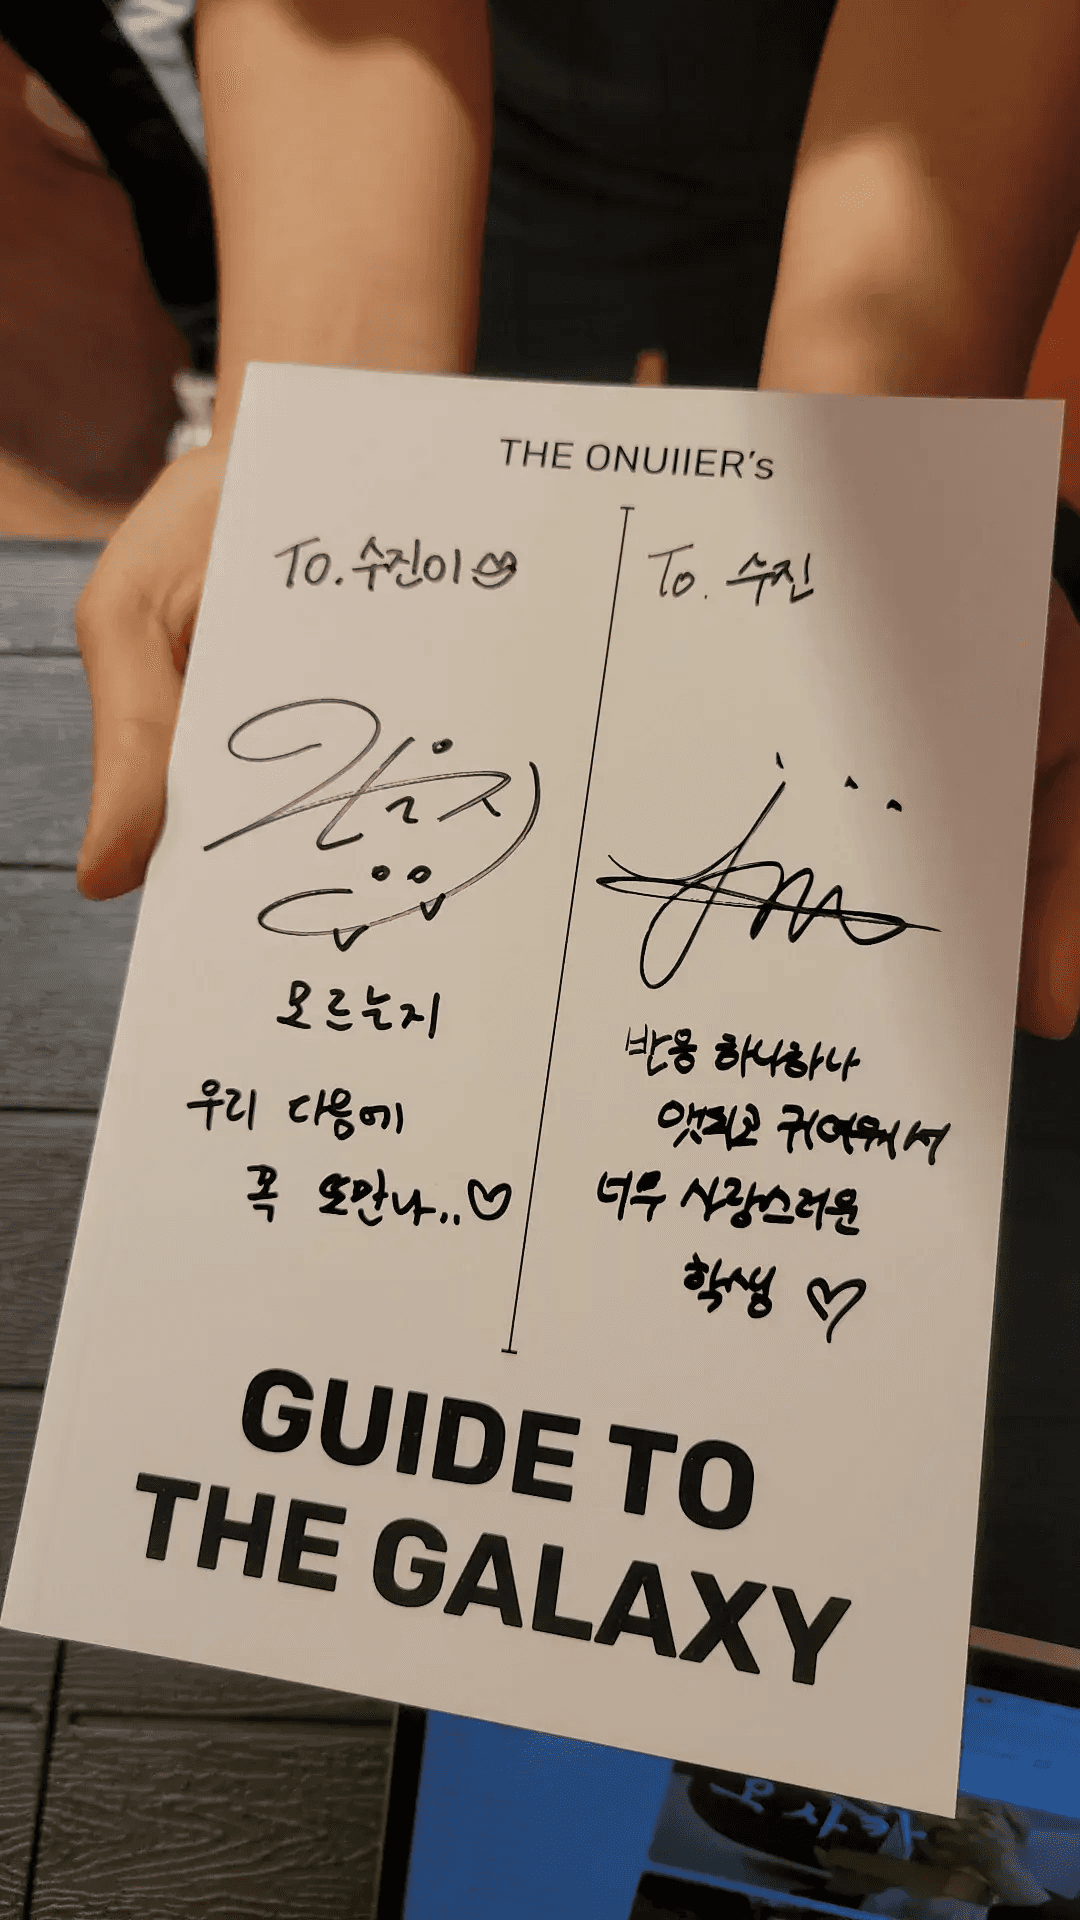 THE ONUIIER's
To. 수진이
모르는지
우리 다음에
꼭 또만나..♡
To. 수진
반응 하나하나
앳되고 귀여워서
너무 사랑스러운
학생 ♡
GUIDE TO
THE GALAXY